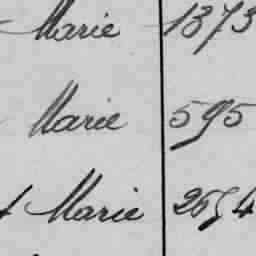 Marie 1373
Marie 595
Marie 2654